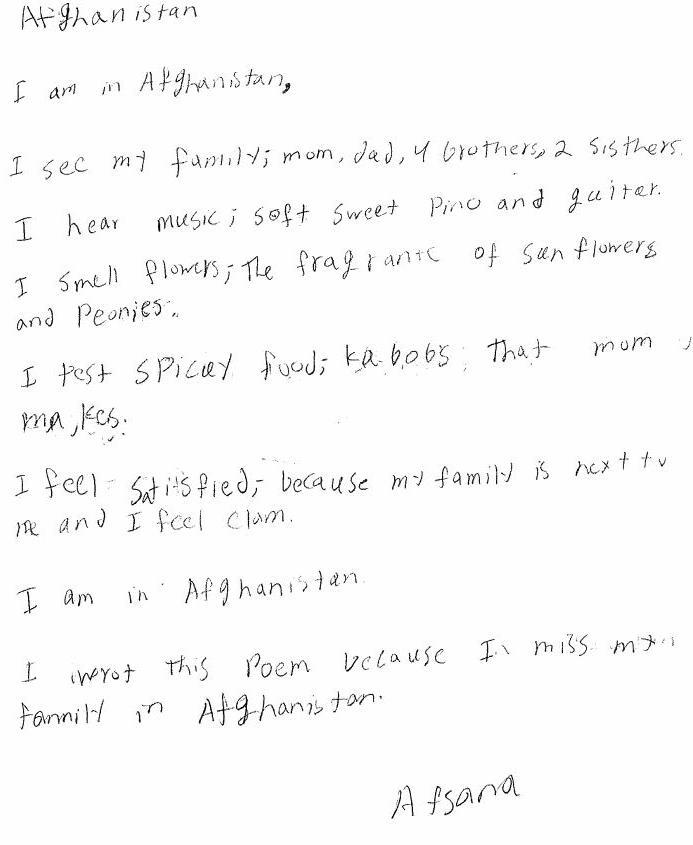 Afghanistan
I am in Afghanistan,
I see my family; mom, dad, 4 brothers, 2 sisthers.
I hear music; soft sweet Pino and guiter.
I smell flowers; The fragrantc of sunflowers
and Peonies.
I test spicey food; kabobs that mom
makes.
I feel satitsfied; because my family is next to
me and I feel clam.
I am in Afghanistan.
I wrot this Poem because I miss my
fammily in Afghanistan.
Afsana